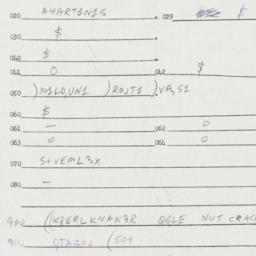 020 AHARTINIS 029 $
030 $
040 $
041 0 042 $
050 )MILO,UNI )ROJTI ).VA,SI
060 $
061 — 062 0
063 0 064 0
070 S+VEML3X
080 —
900 ((K8ERLKNAK3R QGLE NUT CRACK
900 OTAZOJ (509